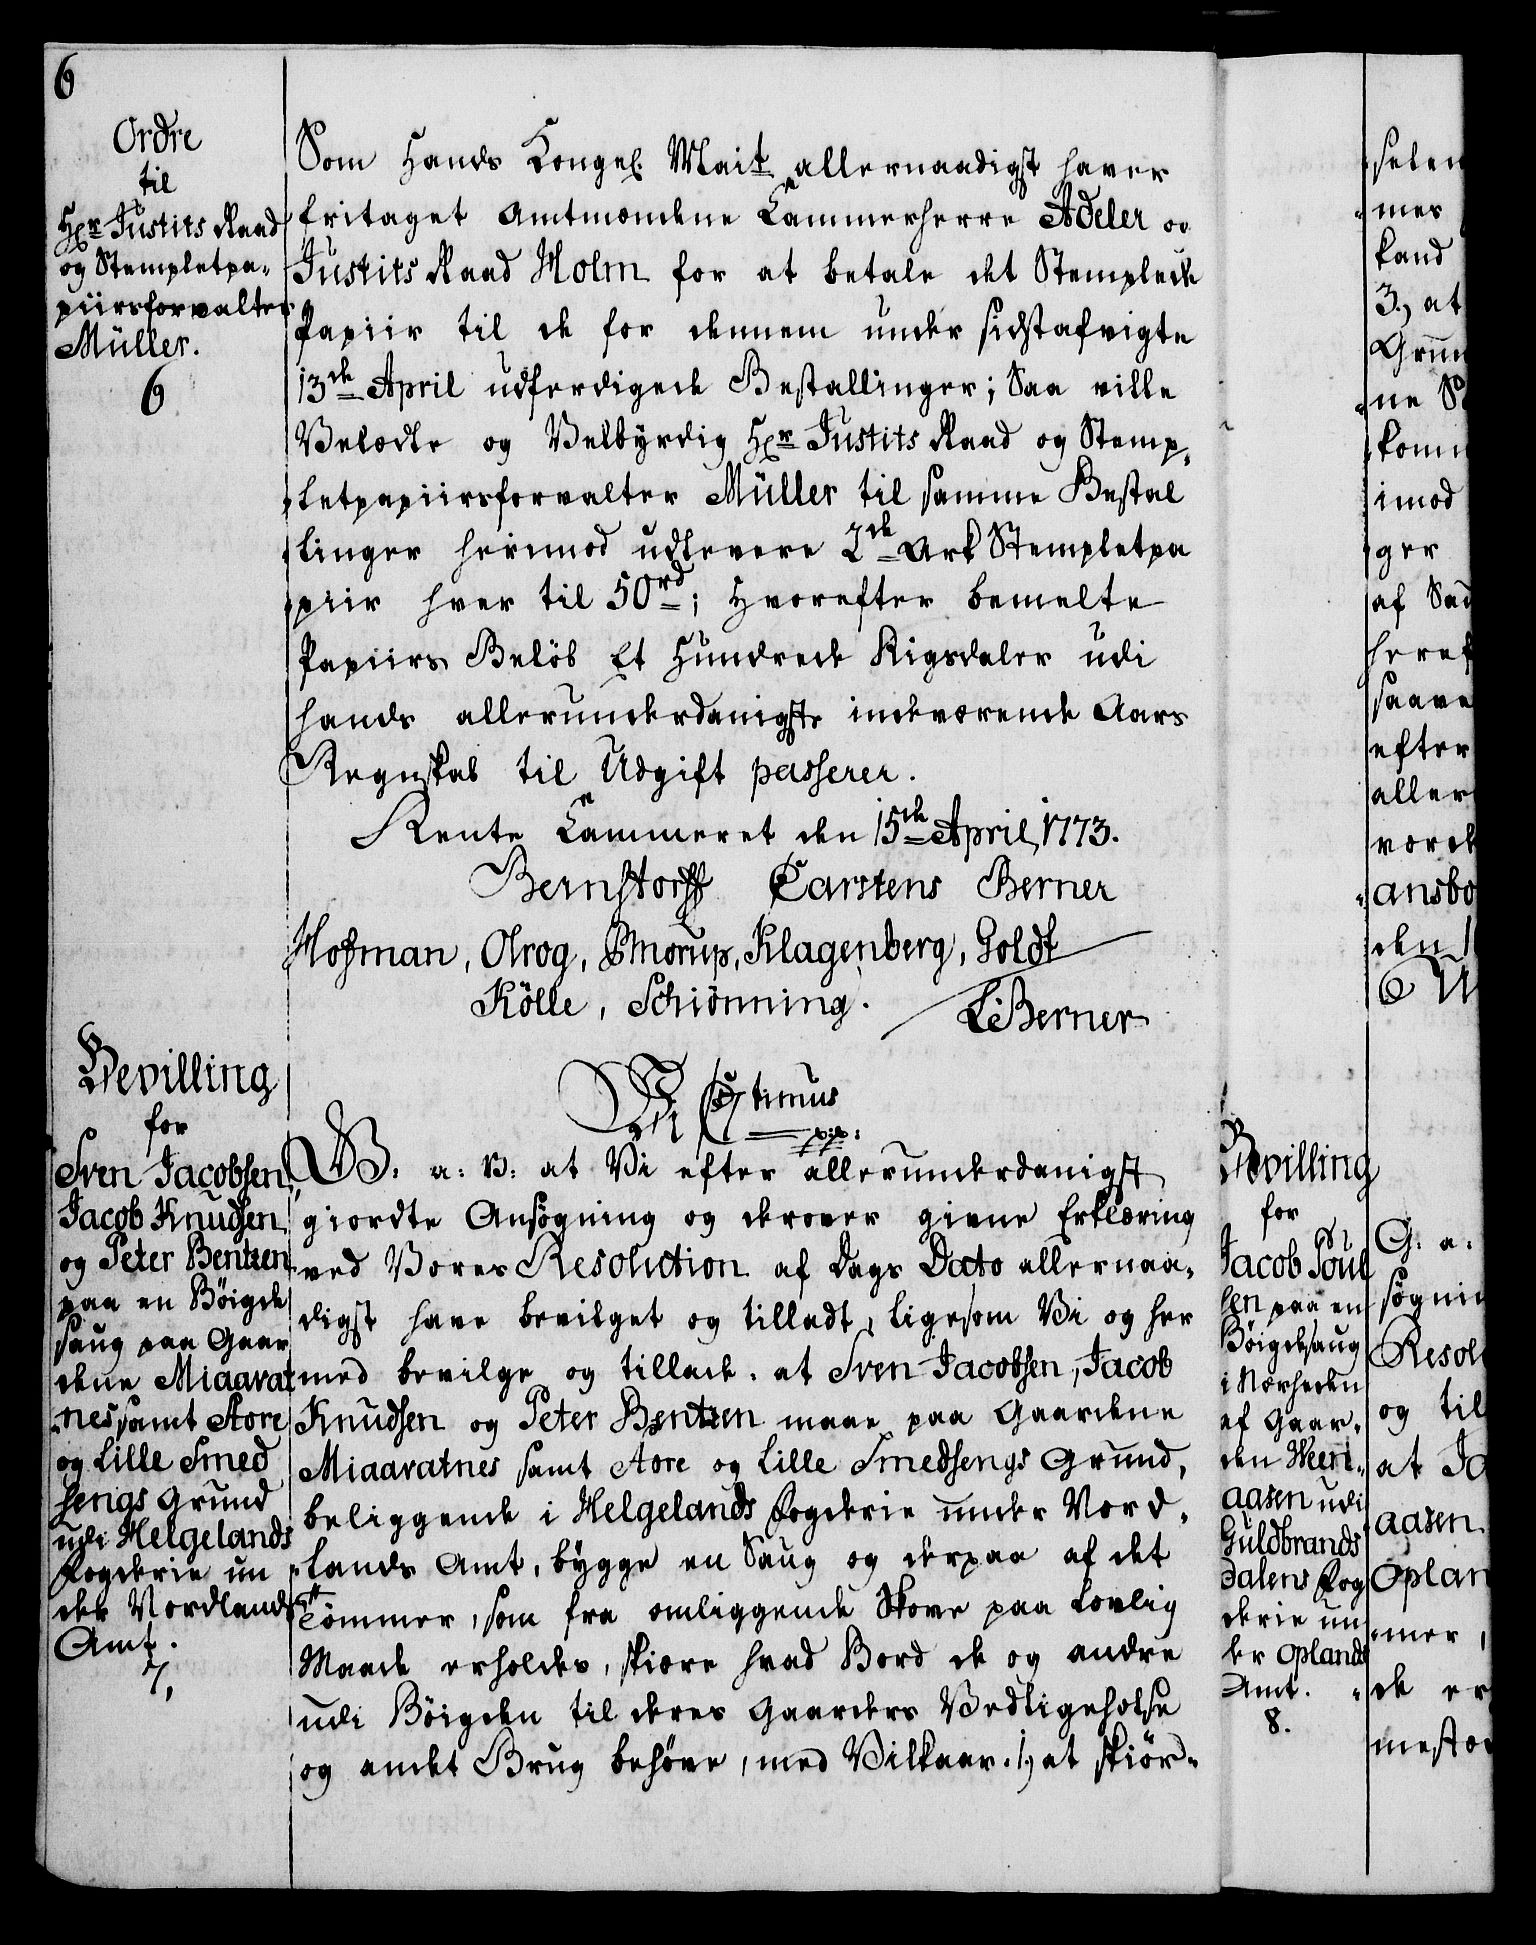 6
Ordre
til
Hr Justits Raad
og Stempletpa-
piirsforvalter
Müller.
6
Som Hands Kongel Mait allernaadigst haver
fritaget Amtmændene Cammerherre Adeler og
Justits Raad Holm for at betale det Stemplede
Papiir til de for dennem under sidstafvigte
13de April udferdigede Bestallinger; Saa ville
Velædle og Velbyrdig Hr Justits Raad og Stemp-
letpapiirsforvalter Müller til samme Bestal
linger herimod udlevere 2de Ark Stempletpa
piir hver til 50rd; Hvorefter bemelte
Papiirs Beløb Et Hundrede Rigsdaler udi
hands allerunderdanigste indeværende Aars
Regnskab til Udgift passerer.
Rente Cammeret den 15de April 1773.
Bernstorff Carstens Berner
Hofman, Olrog, Ømorup, Klagenberg, Goldt
Kölle, Schiönning.
L Berner
Bevilling
for
Sven Jacobsen,
Jacob Knudsen
og Peter Bentzen
paa en Böigde
saug paa Gaar
dene Miaavat
nes samt Store
og Lille Smed
sengs Grund
udi Helgelands
Fogderie un
der Nordlands
Amt.
7.
Vi C 7timus
p:p:
G: a: V: at Vi efter allerunderdanigst
giordte Ansøgning og derover givne Erklæring
ved Vores Resolution af Dags Dato allernaa-
digst have bevilget og tilladt, ligesom Vi og her
med bevilge og tillade, at Sven Jacobsen, Jacob
Knudsen og Peter Bentzen maae paa Gaardene
Miaavatnes samt Store og Lille Smedsengs Grund,
beliggende i Helgelands Fogderie under Nord-
lands Amt, bygge en Saug og derpaa af det
Tømmer, som fra omliggende Skove paa lovlig
Maade erholdes, skiære hvad Bord de og andre
udi Böigden til deres Gaarders Vedligeholse
og andet Brug behøve, med Vilkaar. 1, at skiör-
Bevilling
for
Jacob Poul
sen paa en
Böigdesaug
i Nærheden
af Gaar-
den Ween-
aasen udi
Guldbrands
dalens Fog
derie un
der Oplands
Amt.
8.
selen
mer
kand
3, at
Grun
ne S
komm
imod
ger
af Sau
heref
saave
efter
aller
værde
ansbo
den 1
G: a:
søgnin
Resol
og til
at Ja
aasen
Oplan
mer,
de er
mesto